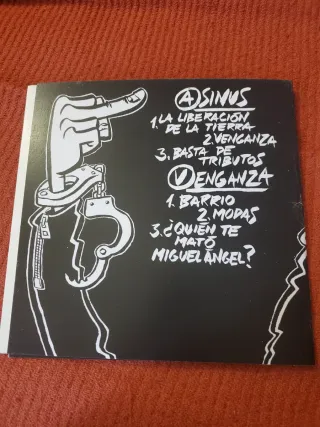 ASINUS
1. LA LIBERACIÓN
DE LA TIERRA
2. VENGANZA
3. BASTA DE
TRIBUTOS
VENGANZA
1. BARRIO
2. MODAS
3. ¿QUIÉN TE
MATÓ
MIGUEL ÁNGEL?